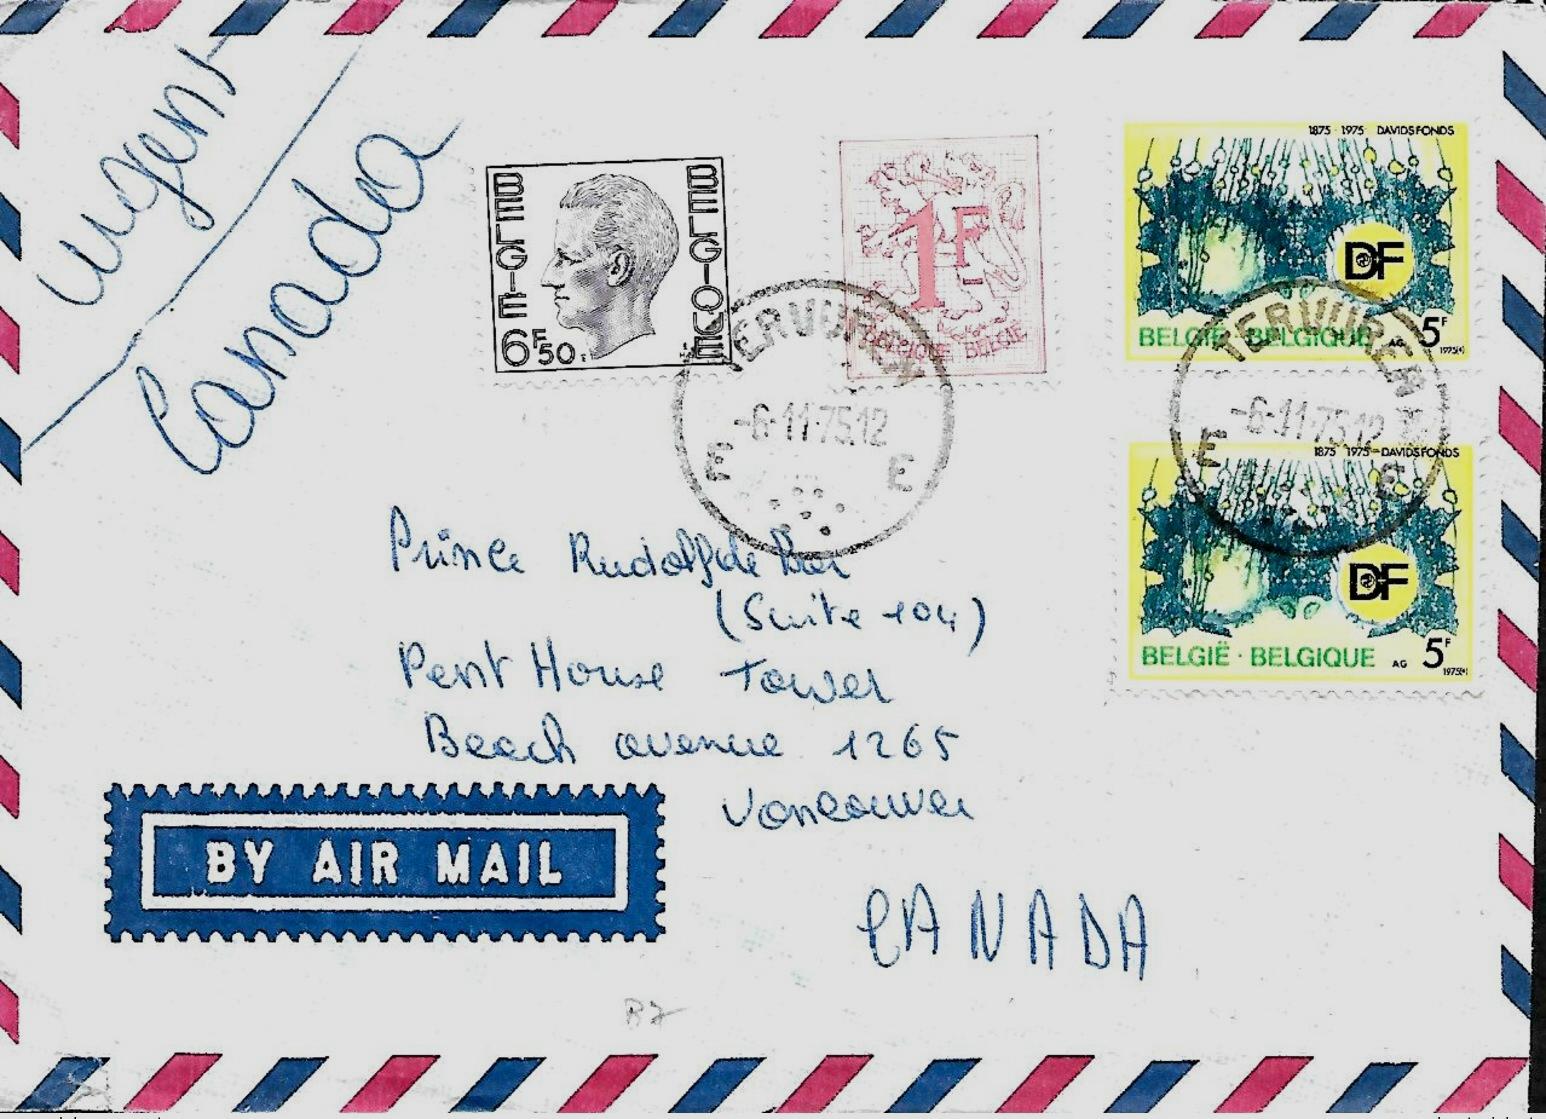 urgent
Canada
BELGIE
BELGIQUE
6F50
1F
BELGIQUE BELGIE
1875 · 1975 · DAVIDSFONDS
DF
BELGIË · BELGIQUE AG 5F
1975(4)
TERVUREN
-6-11-75.12
E E
TERVUREN
-6-11-75.12
E E
1875 1975 - DAVIDSFONDS
DF
BELGIË · BELGIQUE AG 5F
1975(4)
Prince Rudolf de Bar
(Suite 104)
Pent House Tower
Beach avenue 1265
Vancouver
CANADA
BY AIR MAIL